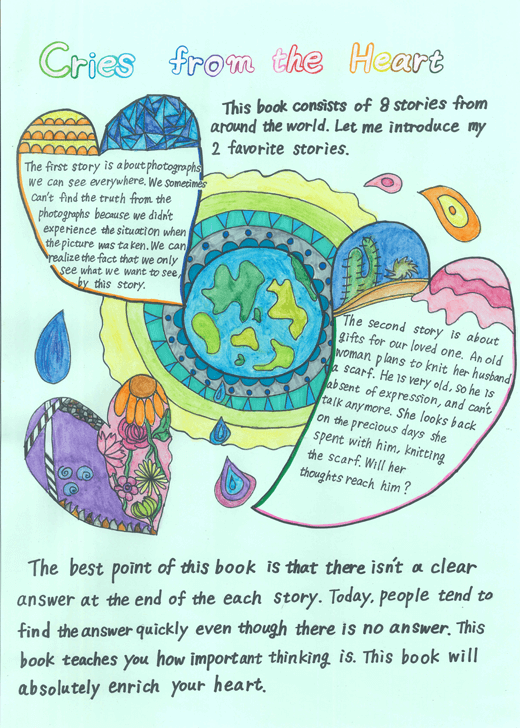 Cries from the Heart
This book consists of 8 stories from
around the world. Let me introduce my
2 favorite stories.
The first story is about photographs
we can see everywhere. We sometimes
can't find the truth from the
photographs because we didn't
experience the situation when
the picture was taken. We can
realize the fact that we only
see what we want to see,
by this story.
The second story is about
gifts for our loved one. An old
woman plans to knit her husband
a scarf. He is very old, so he is
absent of expression, and can't
talk anymore. She looks back
on the precious days she
spent with him, knitting
the scarf. Will her
thoughts reach him?
The best point of this book is that there isn't a clear
answer at the end of the each story. Today, people tend to
find the answer quickly even though there is no answer. This
book teaches you how important thinking is. This book will
absolutely enrich your heart.